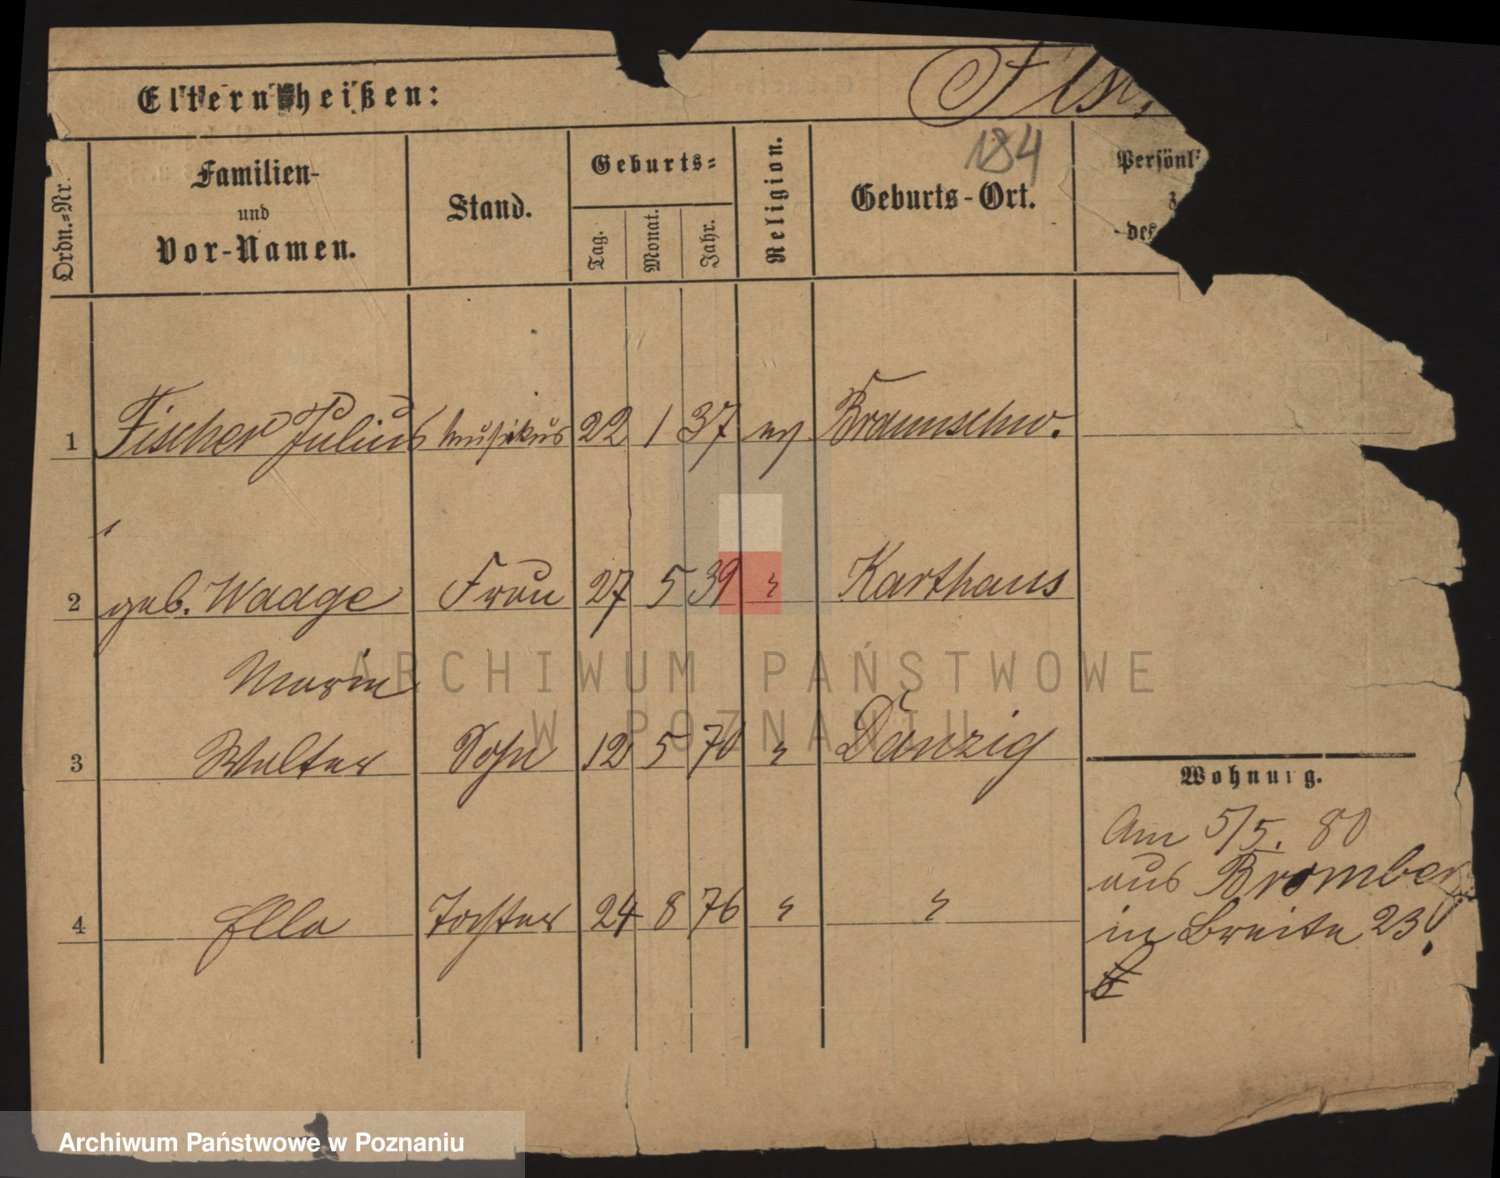 Eltern heißen:
184
Ordn.=Nr.
Familien-
und
Vor-Namen.
Stand.
Geburts=
Tag.
Monat.
Jahr.
Religion.
Geburts-Ort.
Persönl
des
1 Fischer Julius Musikus 22 1 37 ev Braunschw.
2 geb. Waage Frau 27 5 39 " Karthaus
Marie
3 Walter Sohn 12 5 70 " Danzig
4 Ella Tochter 24 8 76 " "
Wohnung.
Am 5/5. 80
aus Bromberg
in Breite 23
ARCHIWUM PAŃSTWOWE
W POZNANIU
Archiwum Państwowe w Poznaniu